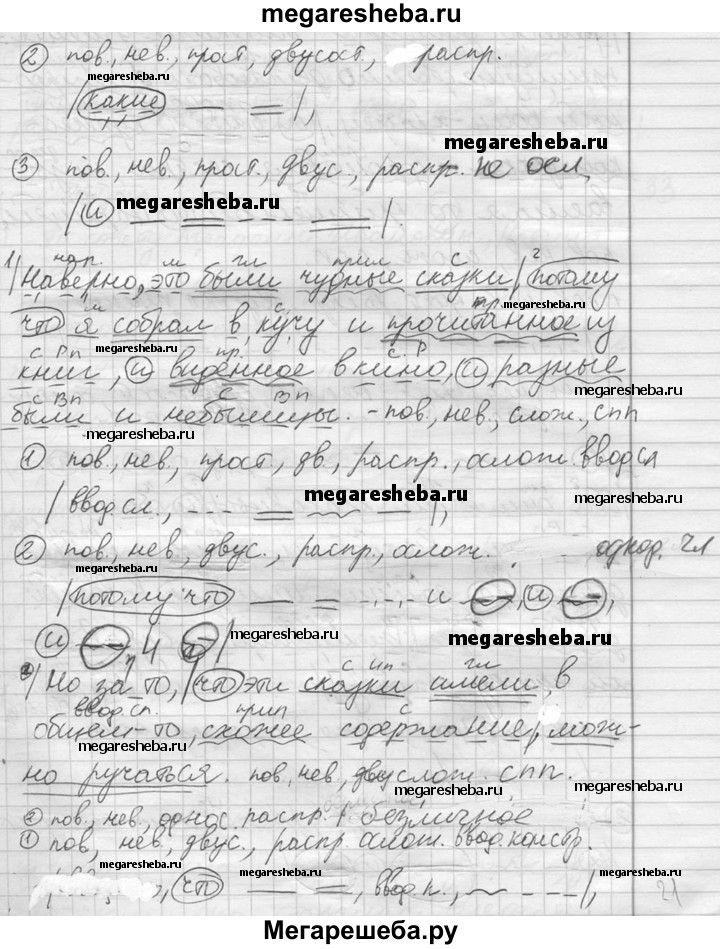 megaresheba.ru
② пов., нев., прост, двусост., распр.
megaresheba.ru
/(какие) — =/,
megaresheba.ru
③ пов., нев., прост., двус., распр. не осл,
megaresheba.ru
/(и) — = - - - =/.
1) нар. м гл прил с
/Наверно, это были чудные сказки/, ²(потому
м с пр. megaresheba.ru
что) я собрал в кучу и прочитанное из
с Рп пр. с. Р
книг, (и) виденное в кино, (и) разные
с Вп с Вп
были и небылицы. - пов., нев., слож., спп
megaresheba.ru megaresheba.ru
① пов., нев, прост, дв., распр., ослож ввод сл
megaresheba.ru megaresheba.ru
/ввод. сл., - - - = ~ —/,
② пов., нев, двус., распр., ослож. однор. чл
/(потому что) — = -.-.- и —, (и) —,
(и) —, и —/ megaresheba.ru megaresheba.ru
2) с ип гл
/Но зато, /(что) эти сказки имели, в
ввод. сл. прил с
общем-то, схожее содержание/, мож-
megaresheba.ru
но ручаться. пов, нев, двуслож. спп.
megaresheba.ru
② пов., нев, однос. распр. безличное
① пов, нев, двус., распр ослож. ввод. констр.
megaresheba.ru megaresheba.ru
, (что) — =, ввод. к., ~ - - -/,
21
megaresheba.ru
Мегарешеба.ру